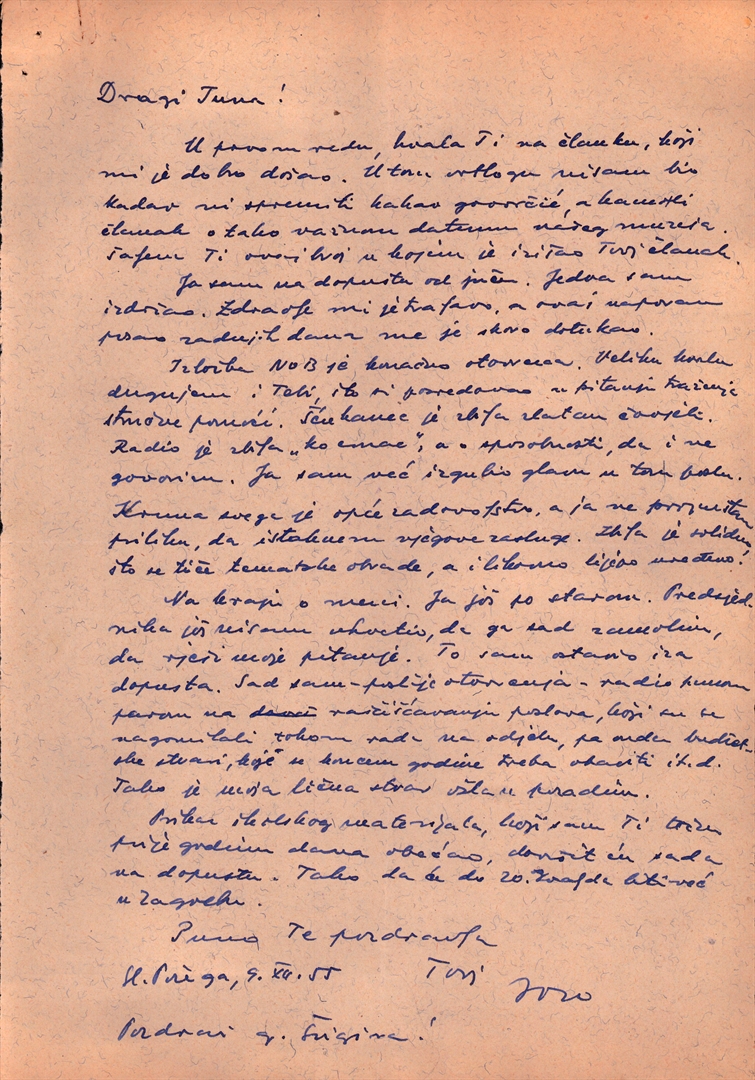 Dragi Tuna!
U prvom redu, hvala Ti na članku, koji
mi je dobro došao. U tom vrtlogu nisam bio
kadar ni spremiti kakav govorčić, a kamoli
članak o tako važnom datumu našeg muzeja.
Šaljem Ti ovaj broj u kojem je izišao Tvoj članak.
Ja sam na dopustu od jučer. Jedva sam
izdržao. Zdravlje mi je traljavo, a ovaj naporan
posao zadnjih dana me je skoro dotukao.
Izložba NOB je konačno otvorena. Veliku hvalu
dugujem i Tebi, što si posredovao u pitanju traženja
stručne pomoći. Šćukanec je zbilja zlatan čovjek.
Radio je zbilja „ko crnac", a o sposobnosti, da i ne
govorim. Ja sam već izgubio glavu u tom poslu.
Kruna svega je opće zadovoljstvo, a ja ne propuštam
priliku, da istaknem njegove zasluge. Zbilja je solidno
što se tiče tematske obrade, a i likovno lijepo uređeno!
Na kraju o meni. Ja još po starom. Predsjed-
nika još nisam uhvatio, da ga sad zamolim,
da riješi moje pitanje. To sam ostavio iza
dopusta. Sad sam - poslije otvorenja - radio punom
parom na raščišćavanju poslova, koji su se
nagomilali tokom rada na odjelu, pa onda budžet-
ske stvari, koje se koncem godine treba obaviti itd.
Tako je moja lična stvar ostala po radim.
Prikaz školskog materijala, koji sam Ti
prije godinu dana obećao, dovršit ću sada
na dopustu. Tako da će do 20. biti već
u Zagrebu.
Puno Te pozdravlja
Sl. Požega, 9. XII. 55 Tvoj
Jozo
Pozdravi g. Šrigina!